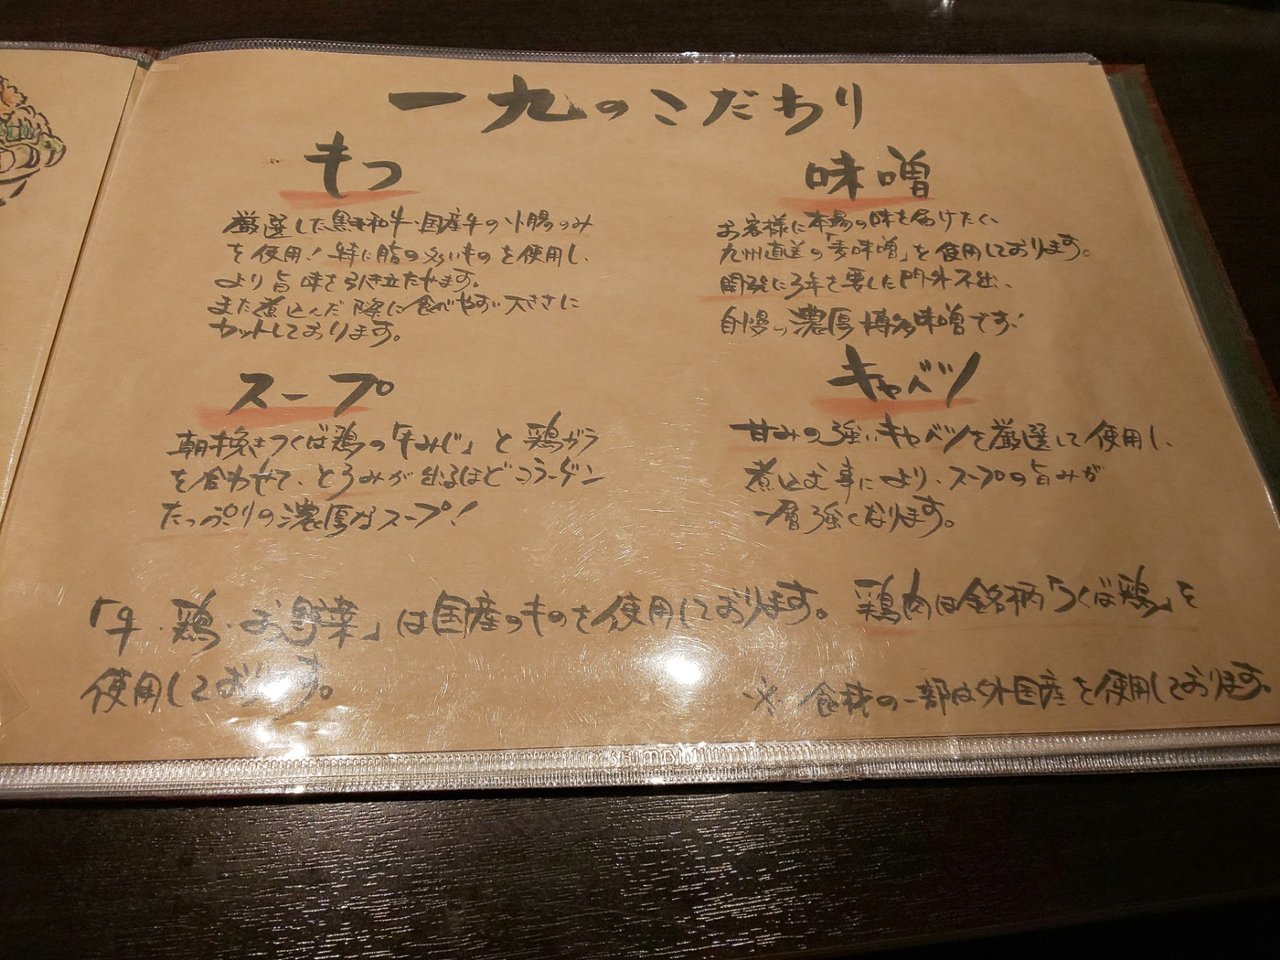 一九のこだわり
もつ
厳選した黒毛和牛・国産牛の小腸のみ
を使用！特に脂の多いものを使用し、
より旨味を引き立たせます。
また煮込んだ際に食べやすい大きさに
カットしております。
味噌
お客様に本場の味を届けたく、
九州直送の「麦味噌」を使用しております。
開発に3年を要した門外不出、
自慢の濃厚博多味噌です！
スープ
朝挽きつくば鶏の「もみじ」と鶏ガラ
を合わせて、とろみが出るほどコラーゲン
たっぷりの濃厚なスープ！
キャベツ
甘みの強いキャベツを厳選して使用し、
煮込む事により、スープの旨みが
一層強くなります。
「牛・鶏・お野菜」は国産のものを使用しております。鶏肉は銘柄「つくば鶏」を
使用しております。
※ 食材の一部は外国産を使用しております。